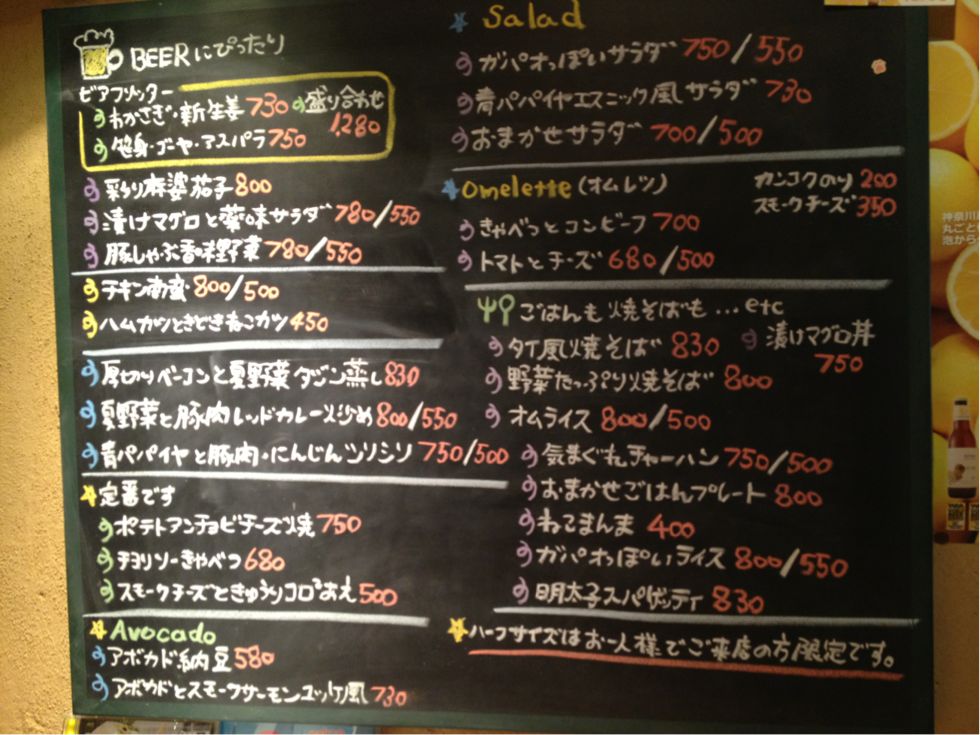 BEERにぴったり
ビアフリッター
わかさぎ・新生姜 730 盛り合わせ
1,280
・ゴーヤ・アスパラ 750
彩り麻婆茄子 800
漬けマグロと薬味サラダ 780/550
豚しゃぶ香味野菜 780/550
チキン南蛮 800/500
ハムカツときどきねこカツ 450
厚切りベーコンと夏野菜タジン蒸し 830
夏野菜と豚肉レッドカレー炒め 800/550
青パパイヤと豚肉・にんじんシリシリ 750/500
定番です
ポテトアンチョビチーズ焼 750
チョリソーきゃべつ 680
スモークチーズときゅうりコロコロあえ 500
Avocado
アボカド納豆 580
アボカドとスモークサーモンユッケ風 730
Salad
ガパオっぽいサラダ 750/550
青パパイヤエスニック風サラダ 730
おまかせサラダ 700/500
Omelette (オムレツ)
カンコクのり 200
スモークチーズ 350
きゃべつとコンビーフ 700
トマトとチーズ 680/500
ごはんも焼そばも…etc
タイ風焼そば 830
漬けマグロ丼
750
野菜たっぷり焼そば 800
オムライス 800/500
気まぐれチャーハン 750/500
おまかせごはんプレート 800
ねこまんま 400
ガパオっぽいライス 800/550
明太子スパゲッティ 830
ハーフサイズはお一人様でご来店の方限定です。
神奈川
丸ごと
泡から